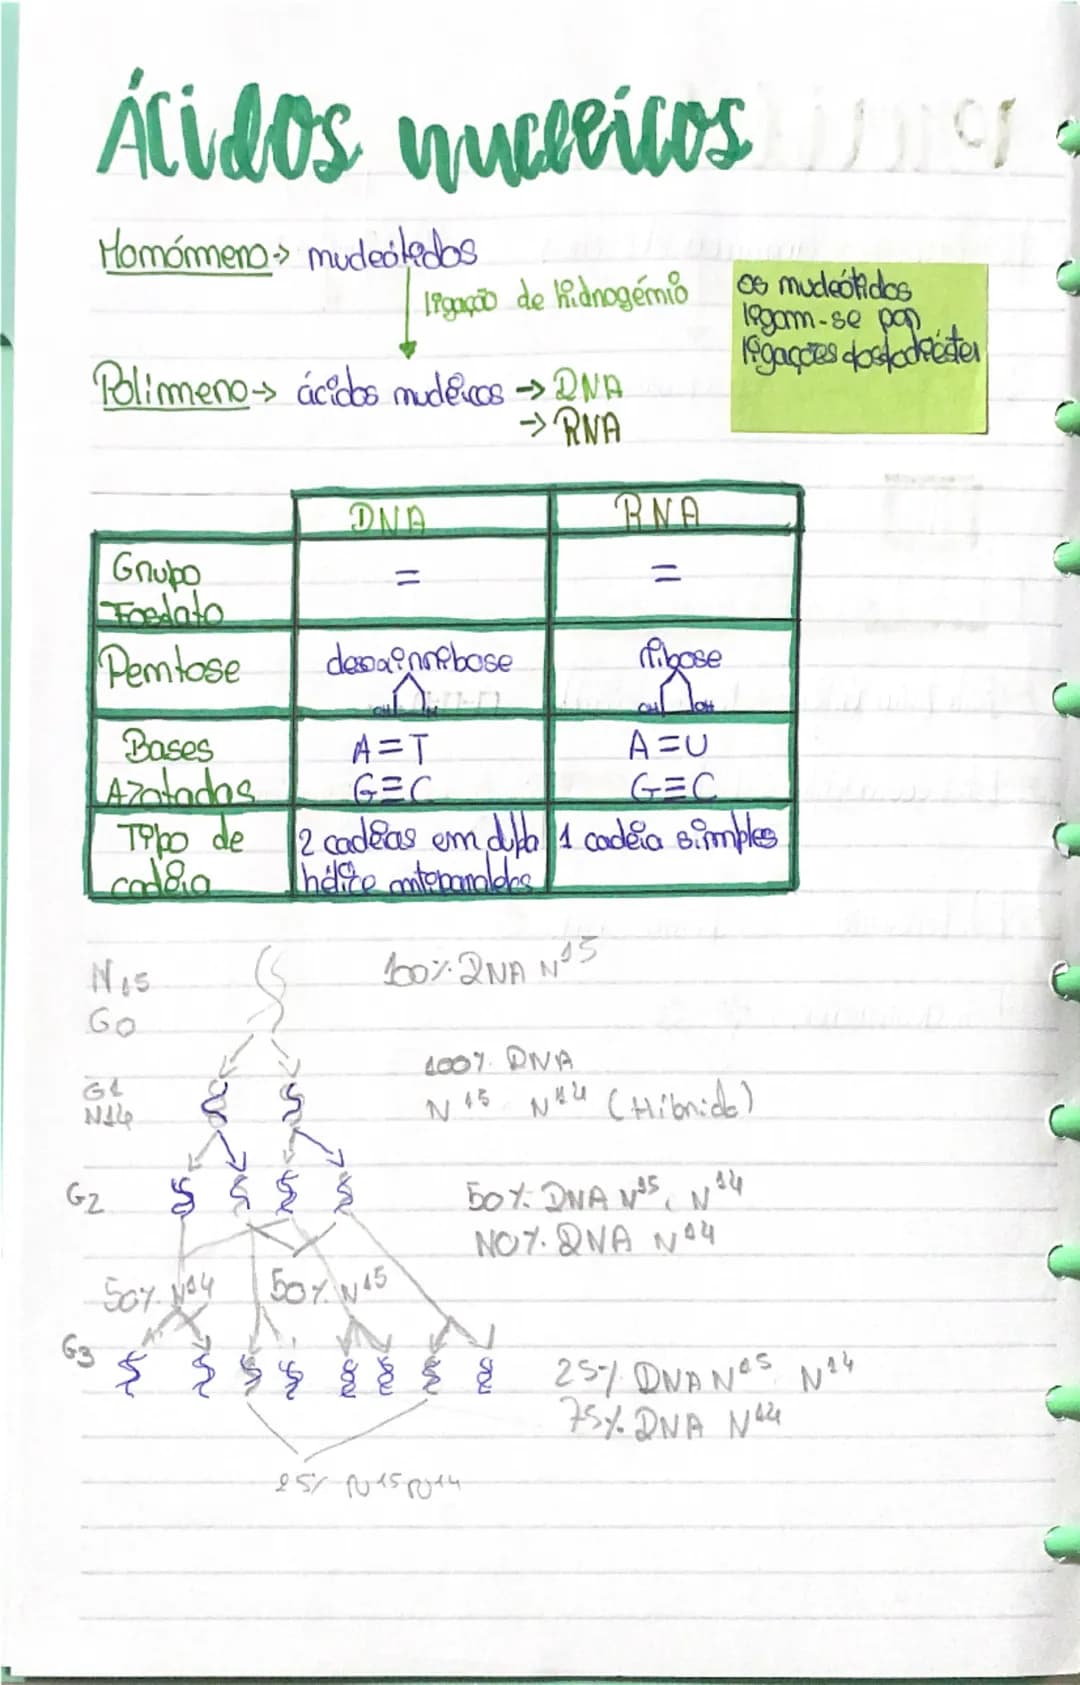 Ácidos nucleicos
Monómero -> nucleótidos
ligação de hidrogénio
os nucleótidos
ligam-se por
ligações fosfodiéster
Polímero -> ácidos nucleicos -> DNA
-> RNA
DNA RNA
Grupo
Fosfato
= =
Pentose
desoxirribose
ribose
OH H
OH OH
Bases
Azotadas
A=T
G≡C
A=U
G≡C
Tipo de
cadeia
2 cadeias em dupla
hélice antiparalelas
1 cadeia simples
N15
G0
100% DNA N15
G1
N14
100% DNA
N15 N14 (Híbrido)
G2
50% DNA N15, N14
NO% DNA N14
50% N14 50% N15
G3
25% DNA N15 N14
75% DNA N14
25% N15 N14